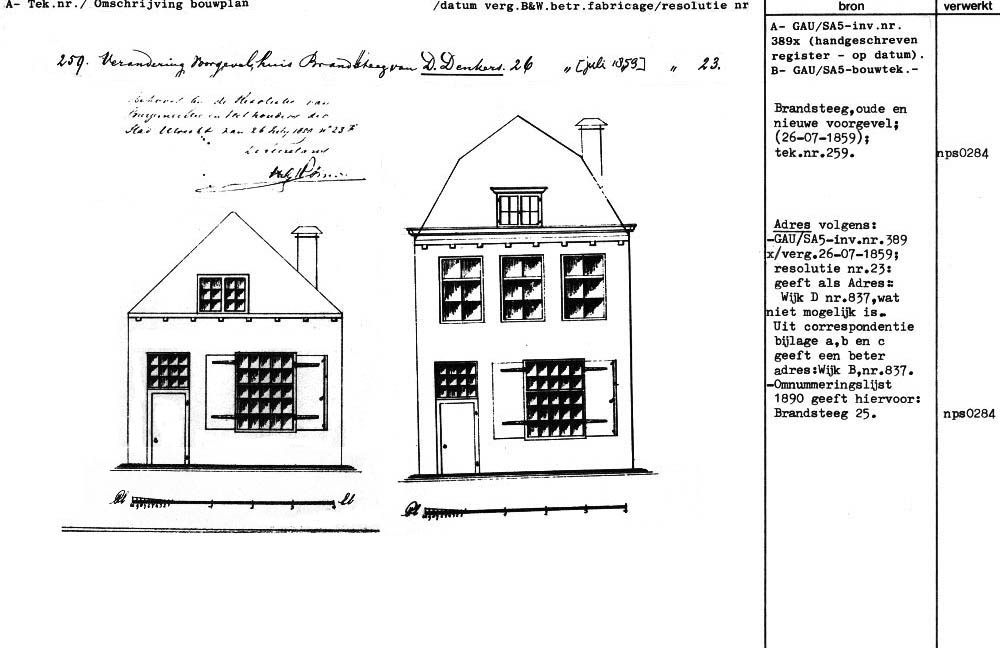 A- Tek.nr./ Omschrijving bouwplan
/datum verg.B&W.betr.fabricage/resolutie nr
bron
verwerkt
259. Verandering Voorgevel, huis Brandsteeg van D. Denkers. 26 „ [juli 1859] „ 23.
Behoort bij de Resolutie van
Burgemeester en Wethouders der
Stad Utrecht van 26 July 1859 No 23
De Secretaris
Pl
El
Pl
A- GAU/SA5-inv.nr.
389x (handgeschreven
register - op datum).
B- GAU/SA5-bouwtek.-
Brandsteeg,oude en
nieuwe voorgevel;
(26-07-1859);
tek.nr.259.
nps0284
Adres volgens:
-GAU/SA5-inv.nr.389
x/verg.26-07-1859;
resolutie nr.23:
geeft als Adres:
Wijk D nr.837,wat
niet mogelijk is.
Uit correspondentie
bijlage a,b en c
geeft een beter
adres:Wijk B,nr.837.
-Omnummeringslijst
1890 geeft hiervoor:
Brandsteeg 25.
nps0284